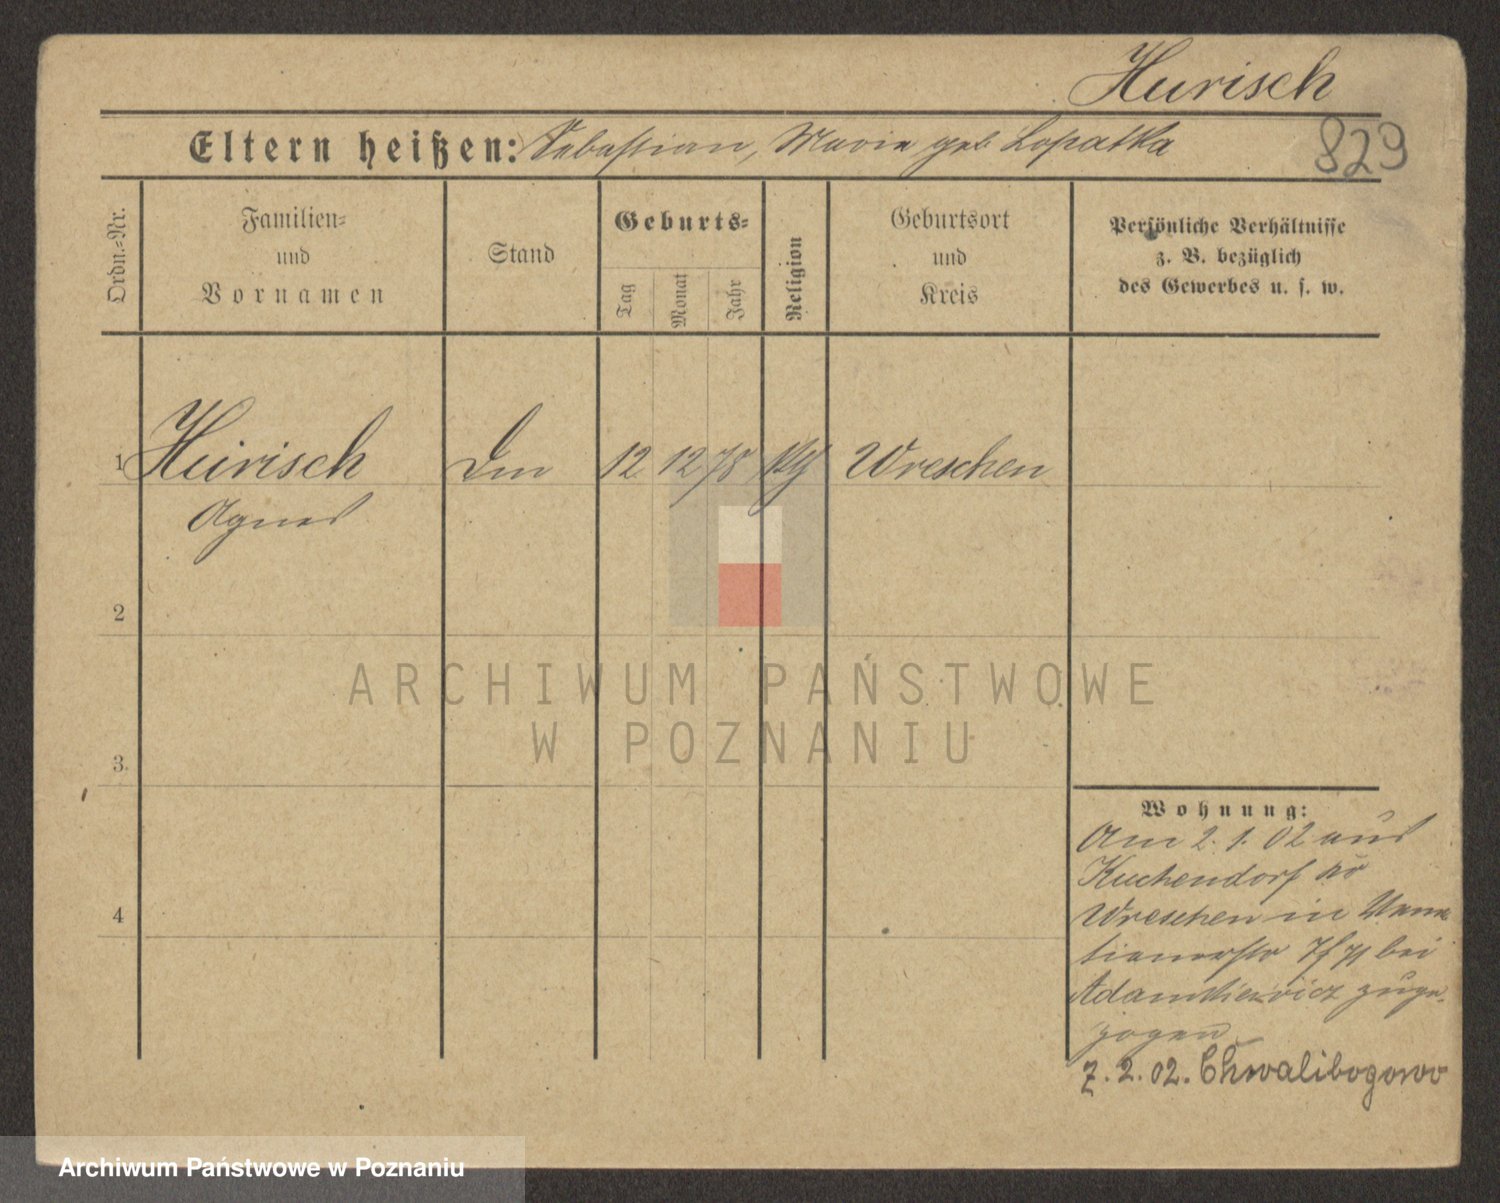 Hurisch
829
Eltern heißen: Sebastian, Marie geb Lopatka
Ordn.=Nr.
Familien=
und
Vornamen
Stand
Geburts=
Tag
Monat
Jahr
Religion
Geburtsort
und
Kreis
Persönliche Verhältnisse
z. B. bezüglich
des Gewerbes u. s. w.
1 Hurisch 12 12 78 Wreschen
Agnes
2
3.
4
Wohnung:
Am 2. 1. 02 aus
Kuchendorf
Wreschen in
bei
Adamkiewicz zuge=
zogen
7. 2. 02. Chwalibogowo
ARCHIWUM PAŃSTWOWE
W POZNANIU
Archiwum Państwowe w Poznaniu